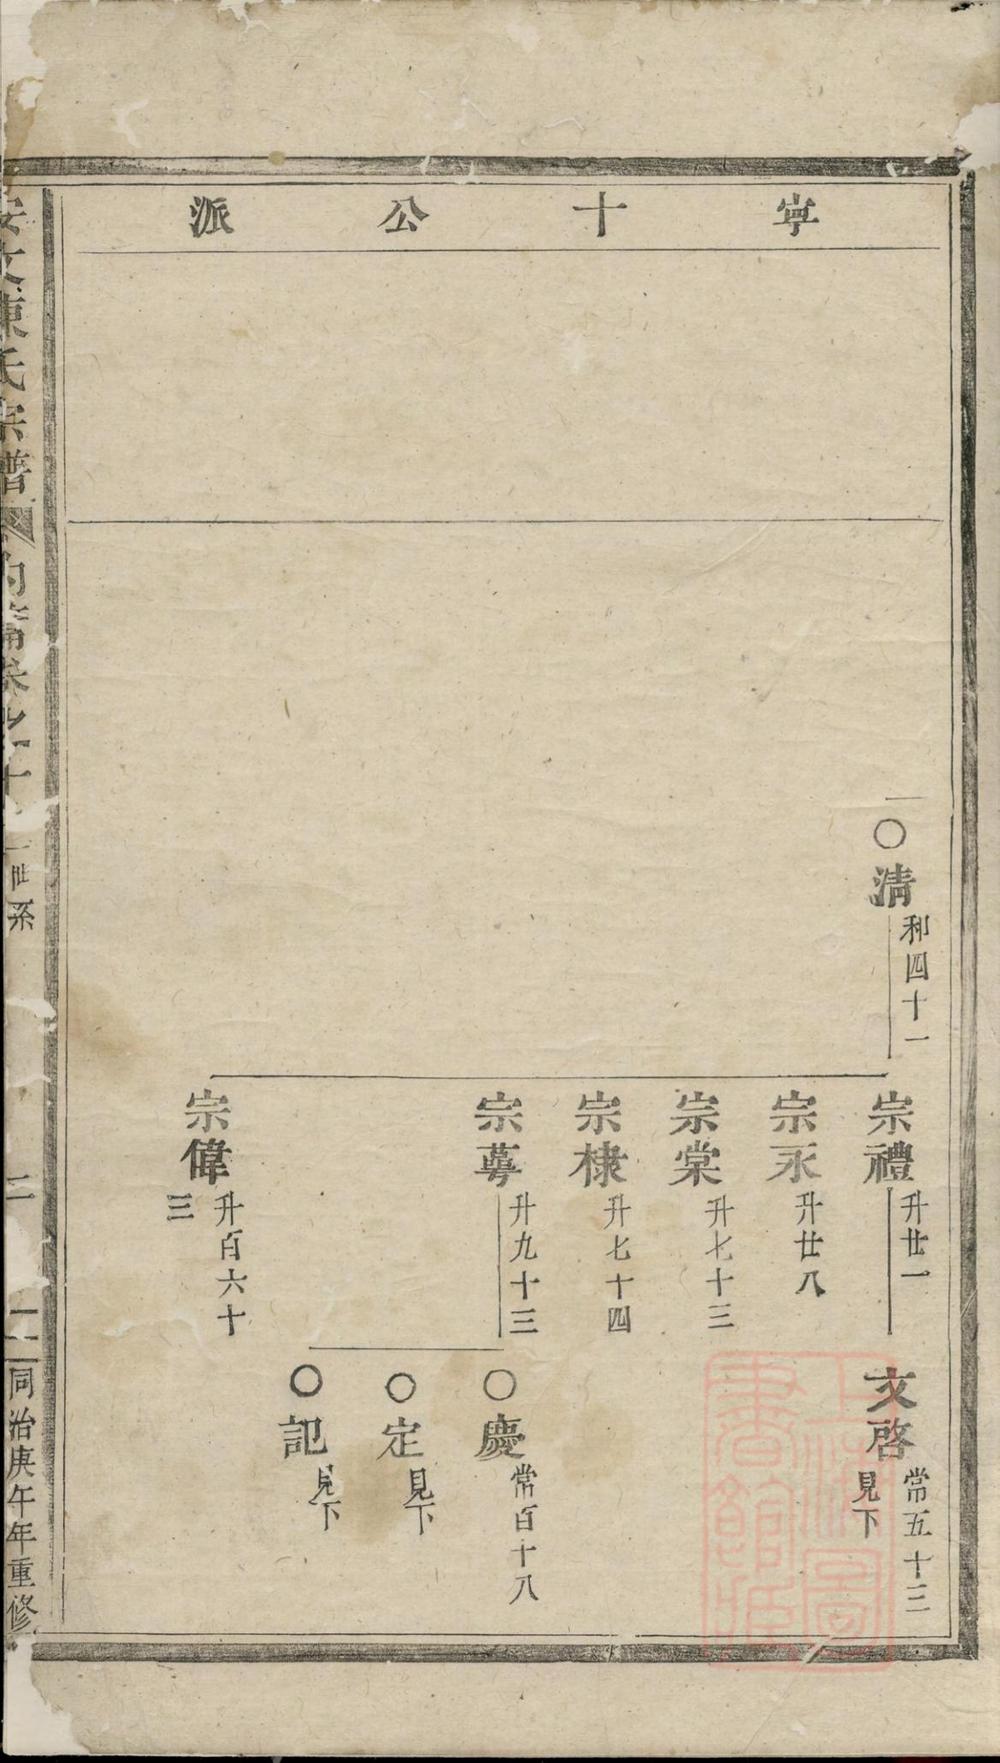 寧十公派
〇清
和四十一
宗禮
升廿一
宗永
升廿八
宗棠
升七十三
宗棣
升七十四
宗蕚
升九十三
宗偉
升百六十
三
文啓
常五十三
見下
〇慶
常百十八
〇定
見下
〇記
見下
安文陳氏宗譜
世系
同治庚午年重修